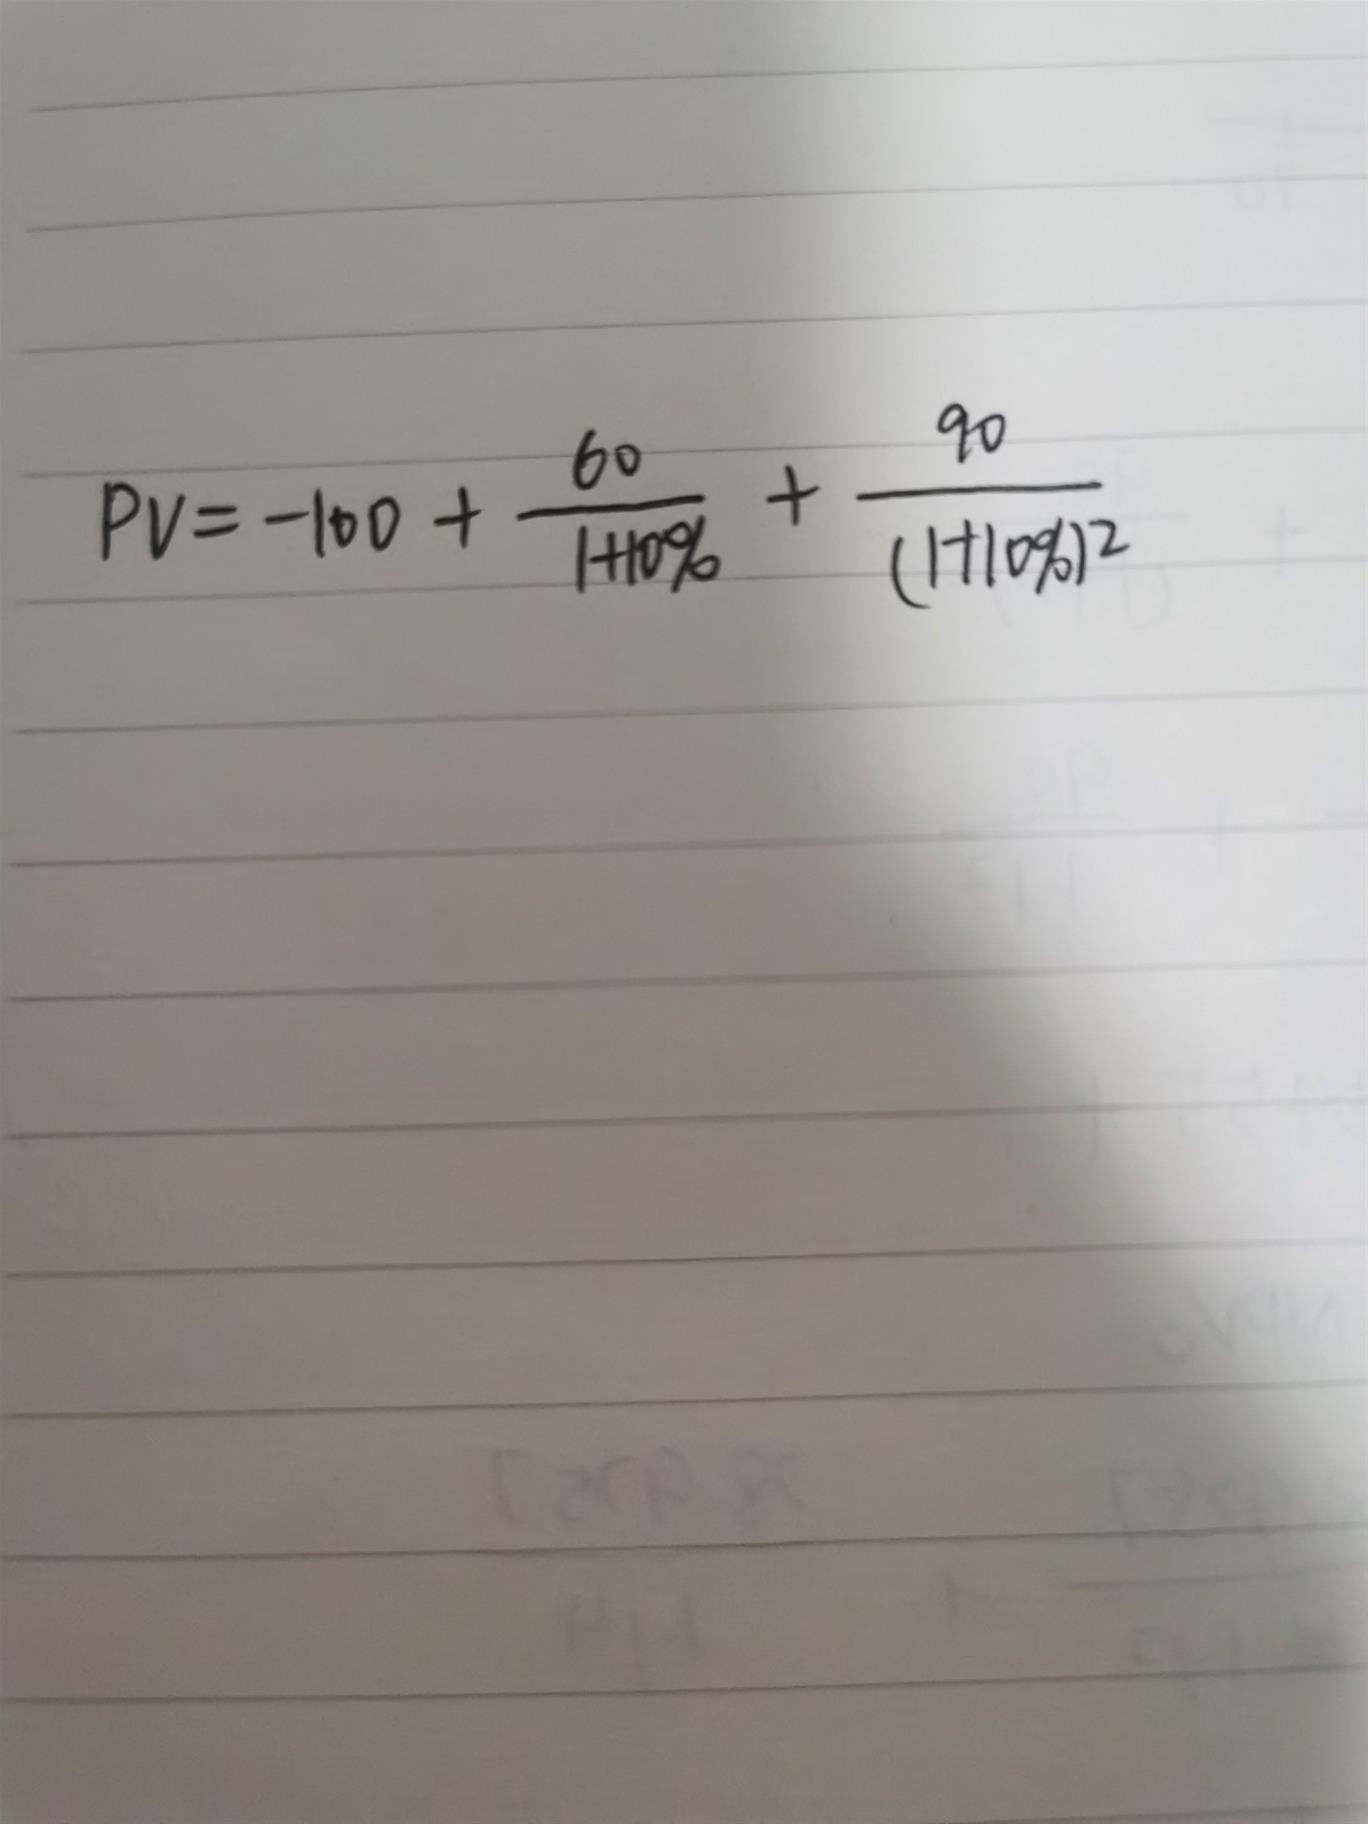 PV = -100 + 60/(1+10%) + 90/(1+10%)²